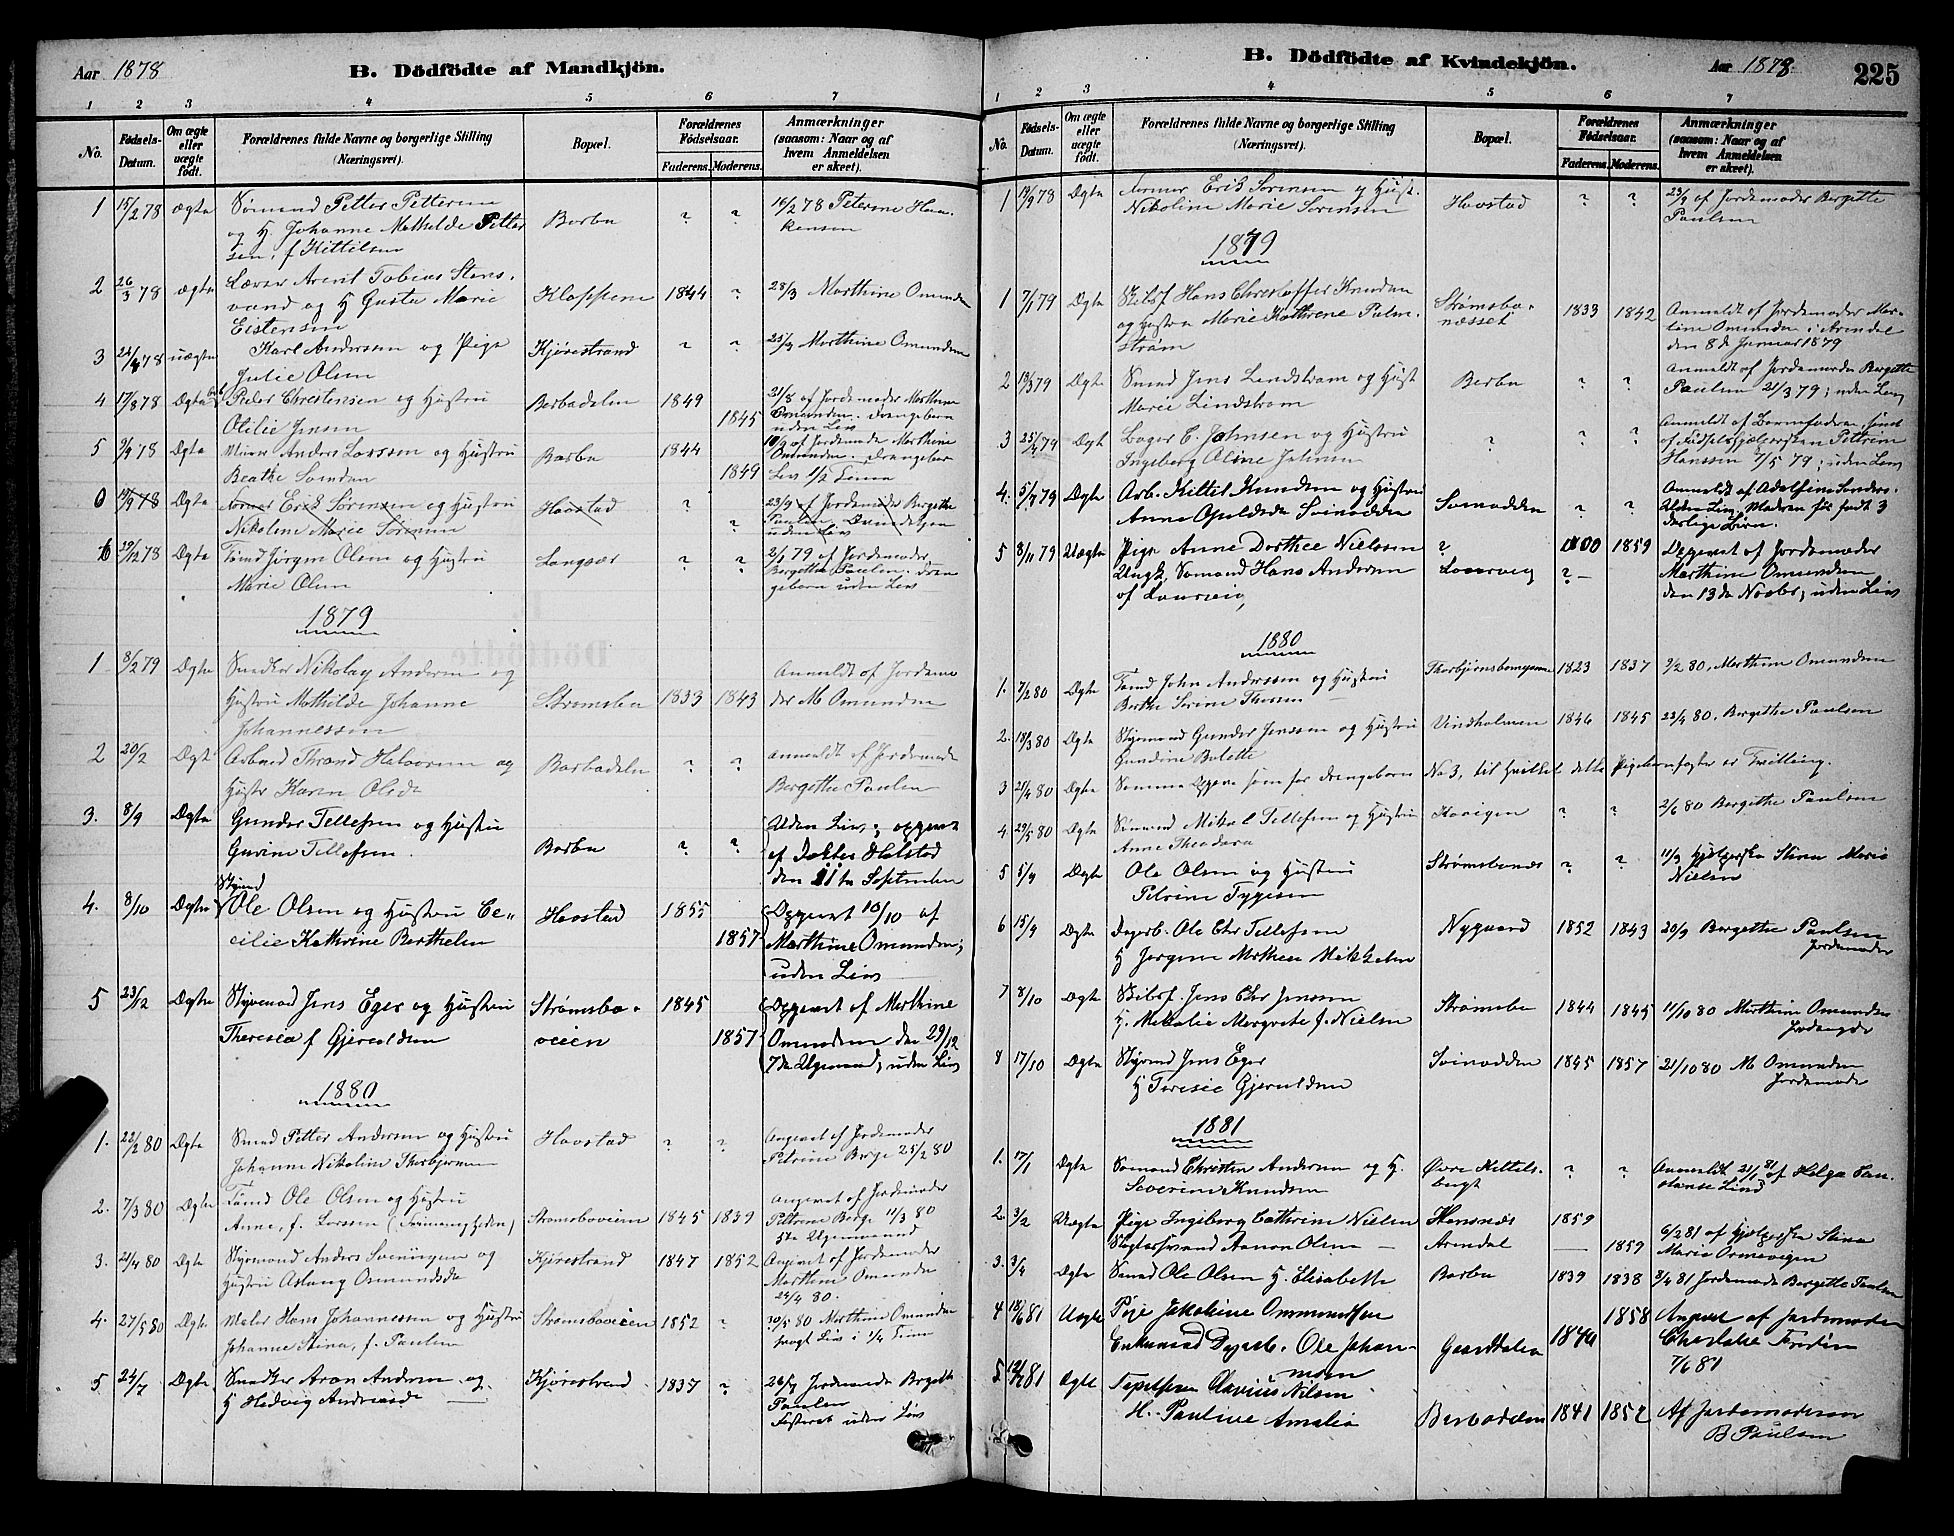 Aar 1878
B. Dödfödte af Mandkjön.
1 2 3 4 5 6 7
No.
Födsels-Datum.
Om ægte eller uægte født.
Forældrenes fulde Navne og borgerlige Stilling (Næringsvei).
Bopæl.
Forældrenes Fødselsaar.
Faderens. Moderens.
Anmærkninger (saasom: Naar og af hvem Anmeldelsen er skeet).
1 15/2 78 ægte Sømand Petter Pettersen Barbu ? ? 16/2 78 Petrine Haa-
og H. Johanne Mathilde Petter kensen
sen, f Kittilsen
2 26/3 78 ægte Arent Tobias Stens- Kloppene 1844 ? 28/3 Marthine Omundsen
vand og H Gusta Marie
Eistensen
3 78 uægte Karl Andersen og Pige Kjørestrand ? ? Marthine Omundsen
Julie Olsen
4 17/8 78 Ægte Peder Christensen og Hustru Barbudalen 1849 21/8 af Jordemoder Marthine
Otilie Jensen 1845 Omundsen. Drengebarn
uden Liv
5 78 Ægte Murer Anders Larssen og Hustru Barbu 1844 af Jordemoder Marthine
Beathe 1849 Omundsen. Drengebarn
Liv 1/2 Time
6 19/9 78 Ægte Former Erik Sørensen og Hustru Havstad ? 23/9 af Jordemoder Bergethe
Nikoline Marie Sørensen ? Paulsen
uden Liv
6 29/12 78 Ægte Tømd Jørgen Olsen og Hustru Langsær ? ? 2/1 79 af Jordemoder
Marie Olsen Bergethe Paulsen. Dren
gebarn uden Liv
1879
1 8/2 79 Ægte Snedker Nikolay Andersen og Anmeldt af Jordemo
Hustru Mathilde Johanne Strømsbu 1833 1843 der M Omundsen
Johannessen
2 20/2 Ægte Arbmd Thrond Halvorsen og Barbudalen ? ? Anmeldt af Jordemoder
Hustr Karen Olsd. Bergethe Paulsen
3. 8/9 Ægte Gunder Tellefsen og Hustru Uden Liv; opgivet
Gurine Tellefsen. Barbu ? ? af Doktor Holstad
den 11te September
4. 8/10 Ægte Styrmd Ole Olsen og Hustru Ce- Havstad 1855 Opgivet 10/10 af
cilie Kathrine Berthelsen 1857 Marthine Omundsen;
uden Liv
5 23/12 Ægte Styrmand Jens Eger og Hustru Strømsbo- 1845 Opgivet af Marthine
Theresea f Gjeruldsen veien 1857 Omundsen den 29/12
7de Ugemaaned; uden Liv
1880
1. 22/2 80 Ægte Smed Petter Andersen og Hustru Havstad ? ? Angivet af Jordemoder
Johanne Nikoline Thorbjørnsen Petrine Berge 25/2 80
2. 7/3 80 Ægte Tømd Ole Olsen og Hustru Angivet af Jordemoder
Anne, f. Larssen Strømsboveien 1845 1839 Petrine Berge 11/3 80
5te Ugemaaned
3. 21/4 80 Ægte Styrmand Anders Sveningsen og Kjørestrand 1847 1852 Angivet af Jordemoder
Hustru Aslaug Osmundsda Marthine Omundsen
24/4 80.
4. 27/5 80 Ægte Maler Hans Johannessen og Hustru Strømsboveien 1852 ? 30/5 80 Marthine Omundsen
Johanne Stina, f. Paulsen svagt Liv i 1/4 Time
5. 24/7 Ægte Snedker Aron Andersen og Kjørestrand 1837 ? 26/7 Jordemoder Bergethe
H Hedvig Andreasd Paulsen
Fosteret uden Liv
B. Dödfödte af Kvindekjön.
Aar 1878.
225
1 2 3 4 5 6 7
No.
Födsels-Datum.
Om ægte eller uægte født.
Forældrenes fulde Navne og borgerlige Stilling (Næringsvei).
Bopæl.
Forældrenes Fødselsaar.
Faderens. Moderens.
Anmærkninger (saasom: Naar og af hvem Anmeldelsen er skeet).
1 19/9 78 Ægte Former Erik Sørensen og Hust. Havstad ? ? 23/9 af Jordemoder Bergette
Nikoline Marie Sørensen Paulsen
1879
1 7/1 79 Ægte Skibsf Hans Christoffer Knudsen Strømsbo- 1833 1842 Anmeldt af Jordemoder Mar-
og Hustru Marie Kathrene Palm- næsset thine Omundsen i Arendal
strøm den 8d Januar 1879
2 19/3 79 Ægte Smed Jens Lindstrøm og Hust Barbu ? ? Anmeldt af Jordemoder Bergette
Marie Lindstrøm Paulsen 21/3 79; uden Liv
3 79 Ægte Bager C. Johnsen og Hustru ? ? Anmeldt af Barnefaderen,
Ingeborg Oline Johnsen af Fødselshjælpersken Petrine
Hanssen 7/5 79; uden Liv
4. 5/7 79 Ægte Arb. Kittil Knudsen og Hustru Svinodden ? ? Anmeldt af Adolfine Sanders.
Anne Svinodden Uden Liv; Moderen før født 3
Liv.
5 8/11 79 Uægte Pige Anne Dorthee Nielssen ? 1859 Opgivet af Jordemoder
Ungk. Sømand Hans Andersen Laurvig ? — Marthine Omundsen
af Laurvig, den 13de Novbr; uden Liv
1880
1. 7/2 80 Ægte Tømd John Anderssen og Hustru 1823 1837 9/2 80. Marthine Omundsen
Berthe Serine
2. 18/3 80 Ægte Styrmand Gunder Jenssen og Hustru Vindholmen 1846 1845 Bergithe Paulsen
Gundine Bolette
3 21/4 80 Ægte Samme Opgave som for Drengebarn No 3, til hvilket dette Pigebarnfoster er Tvilling.
4 29/5 80 Ægte Sømand Mikal Tellefsen og Hustru Kovigen ? ? 2/6 80 Bergithe Paulsen
Anne Theodora
5 5/9 Ægte Ole Olsen og Hustru Strømsbunæs ? ? 11/9 Hjælperske Stina Marie
Petrine Tygesen Nielsen
6 15/9 Ægte Dagarb. Ole Chr Tellefsen Nygaard 1852 1843 20/9 Bergethe Paulsen
H Jørgine Mathea Mikkelsen Jordemoder
7 8/10 Ægte Skibsf. Jens Chr Jenssen Strømsbu 1844 1845 11/10 80 Marthine Omundsen
H. Mikalie Margrete f. Nielsen
8 17/10 Ægte Styrmd Jens Eger Svinodden 1845 1857 21/10 80 M Omundsen
H Teresie Gjeruldsen Jordemoder
1881
1. 17/1 Ægte Sømand Christen Andersen og H. Øvre Kittels- ? ? Anmeldt 21/1 81 af Helga Con-
Severine Knudsen bugt stanse Lind
2. 3/2 Uægte Pige Ingeborg Cathrine Nielsen Hansnæs 1859 6/2 81 af Hjælperske Stina
Aanon Olsen — Arendal — 1859 Marie Ormevigen
3. 3/4 Ægte Smed Ole Olsen H. Elisabette Barbu 1839 1838 8/4 81 Jordemoder Bergette Paulsen
4 81 Uægte Pige Jakobine Ommundsen 1858 Angivet af Jordemoder
Enkemand Dagarb. Ole Johan- Gaarddalen 1840 Charlotte
nsen 7/6 81
5 81 Ægte Clavius Nilsen
H. Pauline Amalia Barbodalen 1841 1852 Af Jordemoderen
B Paulsen